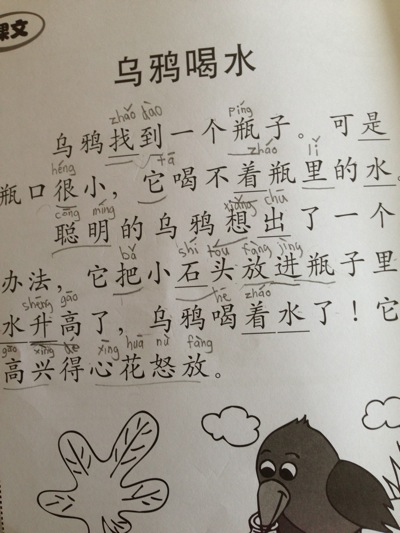 课文
乌鸦喝水
zhǎo dào píng
乌鸦找到一个瓶子。可是
héng tā zháo lǐ
瓶口很小，它喝不着瓶里的水。
cōng míng xiǎng chū
聪明的乌鸦想出了一个
bǎ shí tóu fàng jìng
办法，它把小石头放进瓶子里
shēng gāo hē zháo
水升高了，乌鸦喝着水了！它
gāo xìng dé xīng huā nù fàng
高兴得心花怒放。